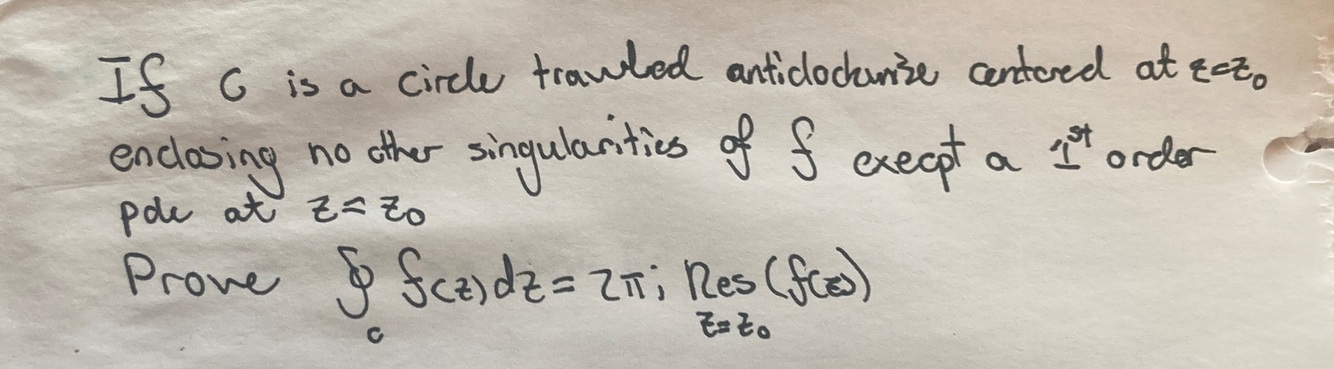 If C is a circle travelled anticlockwise centered at z=z₀
enclosing no other singularities of f execpt a 1st order
pole at z=z₀
Prove ∮_C f(z)dz = 2πi Res(f(z))
z=z₀